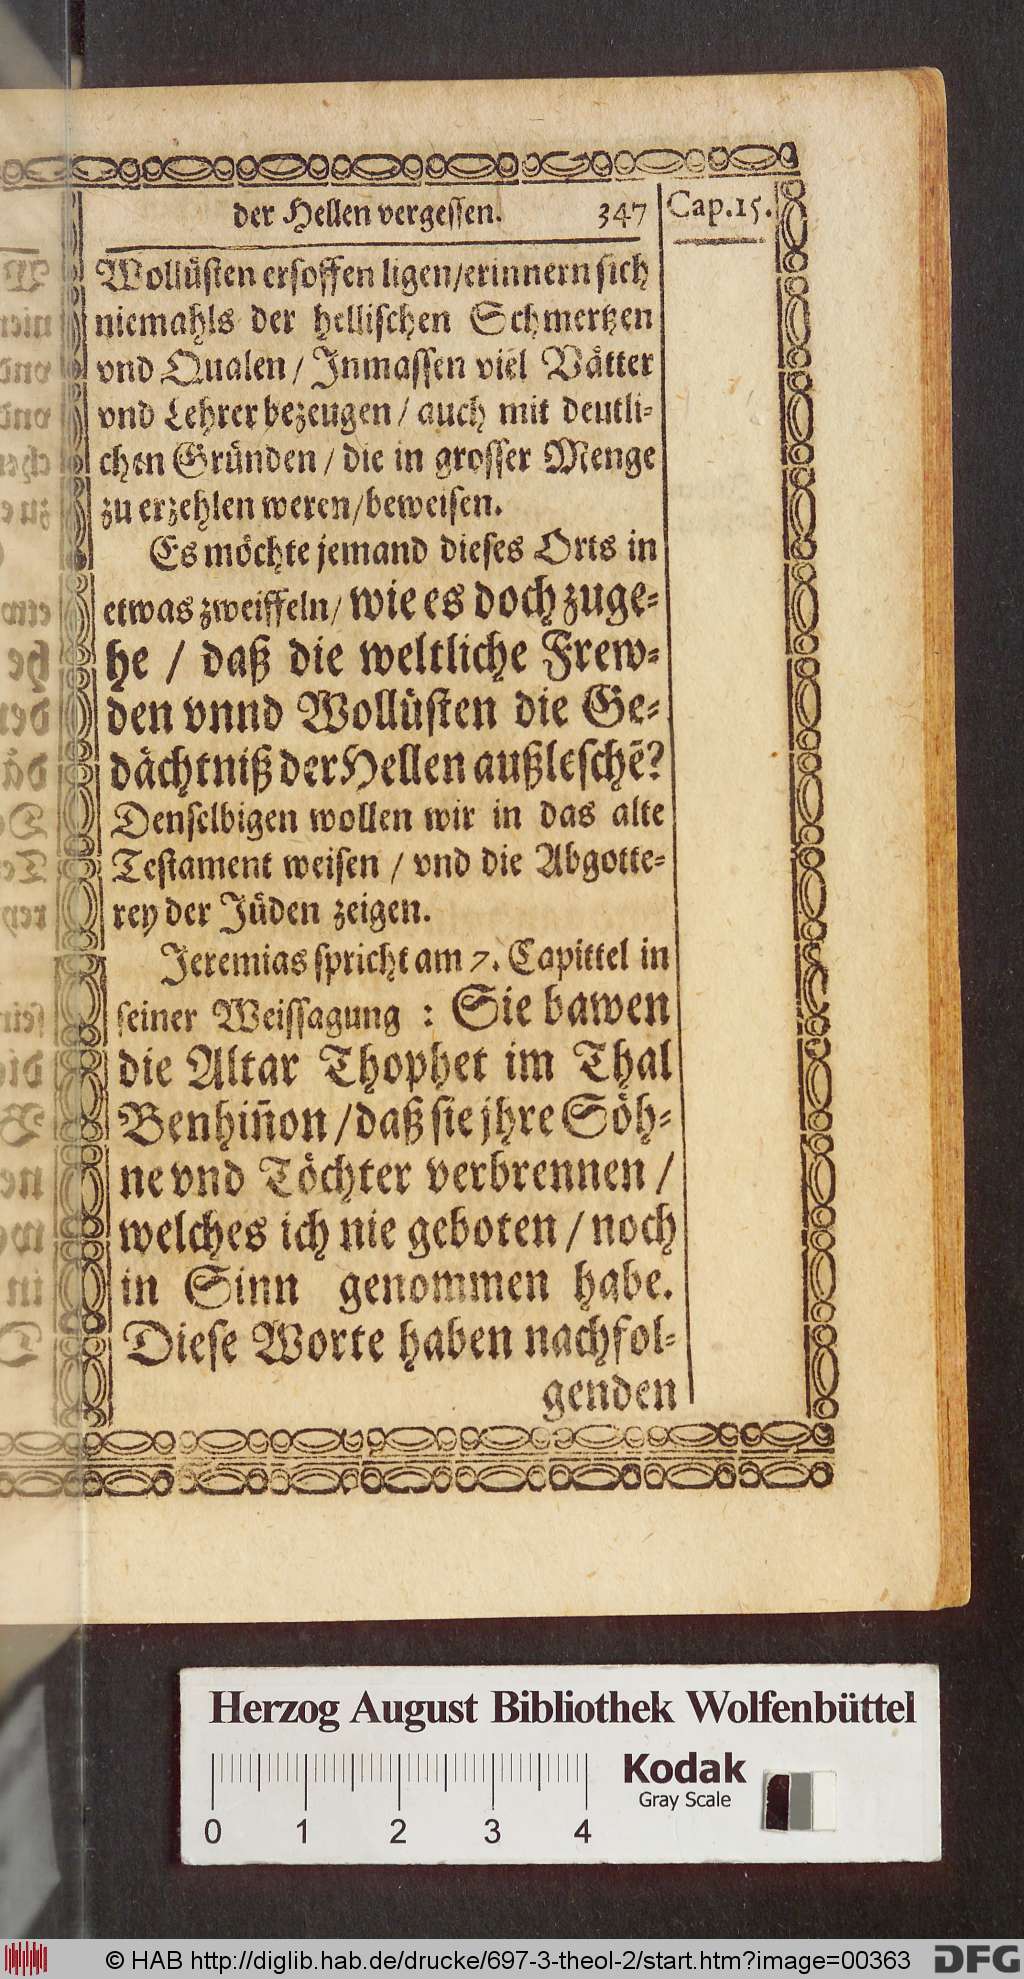 der Hellen vergessen. 347 Cap.15.
Wollüsten ersoffen ligen/erinnern sich
niemahls der hellischen Schmertzen
vnd Qualen / Inmassen viel Vätter
vnd Lehrer bezeugen / auch mit deutli-
chen Gründen / die in grosser Menge
zu erzehlen weren/beweisen.
Es möchte jemand dieses Orts in
etwas zweiffeln/ wie es doch zuge-
he / daß die weltliche Frew-
den vnnd Wollüsten die Ge-
dächtniß der Hellen außleschẽ?
Denselbigen wollen wir in das alte
Testament weisen / vnd die Abgotte-
rey der Jüden zeigen.
Jeremias spricht am 7. Capittel in
seiner Weissagung : Sie bawen
die Altar Thophet im Thal
Benhiñon /daß sie jhre Söh-
ne vnd Töchter verbrennen /
welches ich nie geboten / noch
in Sinn genommen habe.
Diese Worte haben nachfol-
genden
Herzog August Bibliothek Wolfenbüttel
Kodak
Gray Scale
0 1 2 3 4
© HAB http://diglib.hab.de/drucke/697-3-theol-2/start.htm?image=00363 DFG